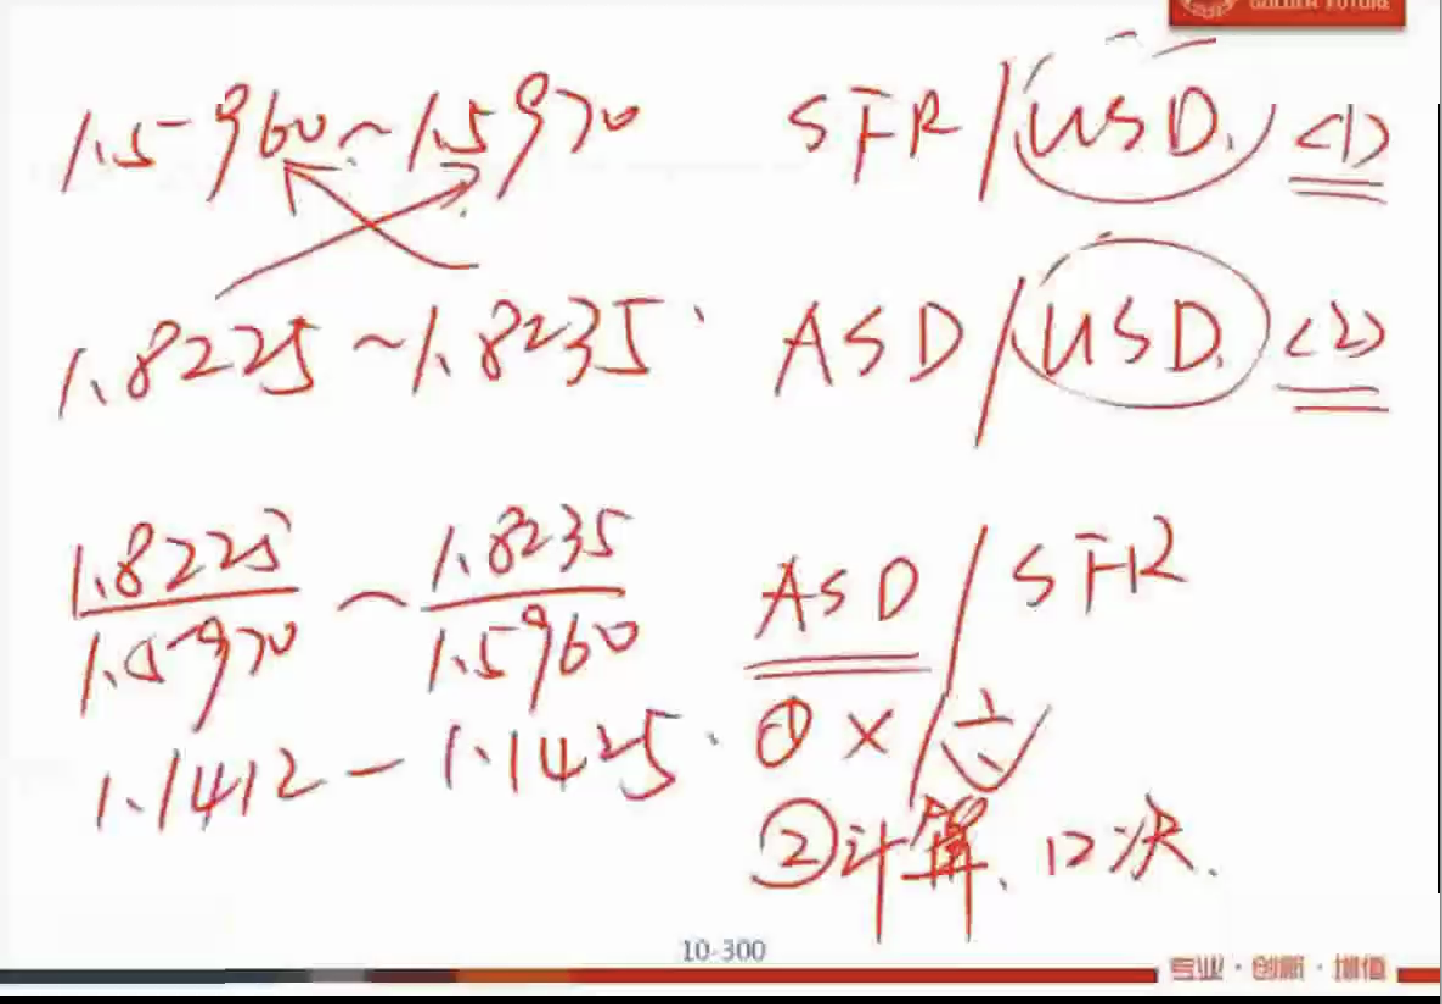 GOLDEN FUTURE
1.5960~1.5970 SFR/USD. <1>
1.8225~1.8235. ASD/USD. <2>
1.8225/1.5970 ~ 1.8235/1.5960 ASD/SFR
1.1412-1.1425. ① ×/六
②计算、口决.
10-300
专业·创新·增值